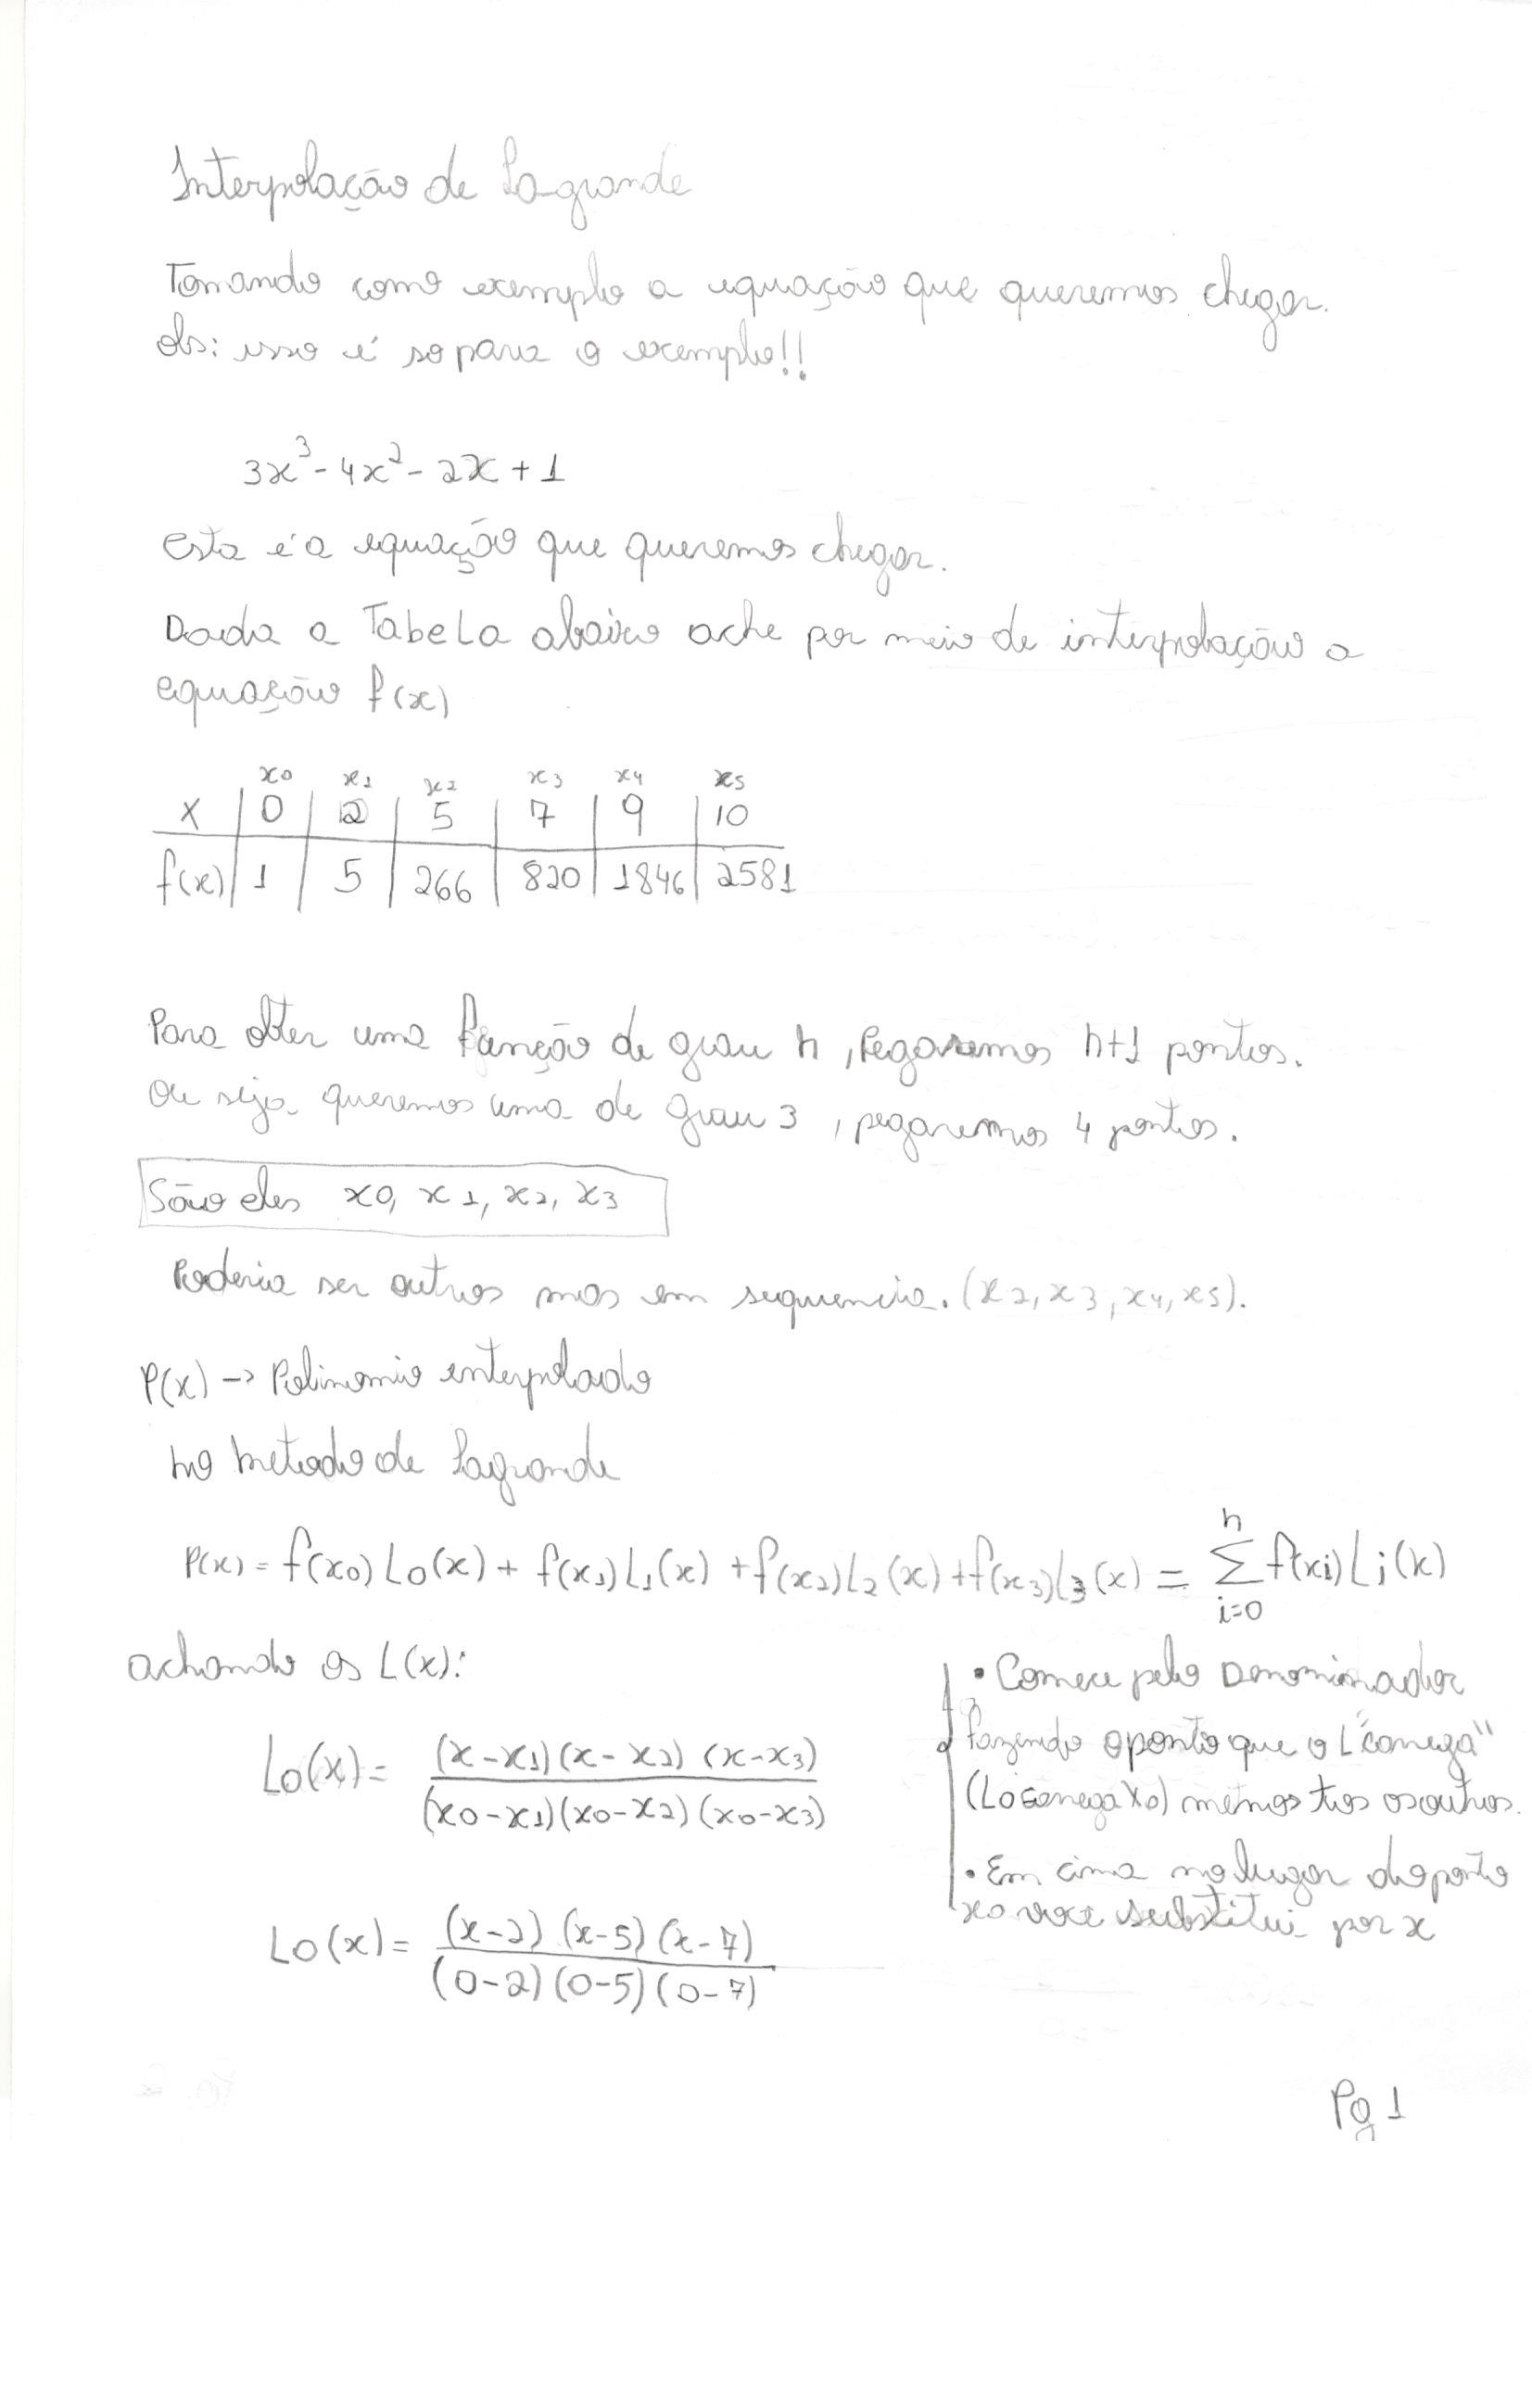 Interpolação de Lagrande
Tomando como exemplo a equação que queremos chegar.
obs: isso é so para o exemplo!!
3x³ - 4x² - 2x + 1
Esta é a equação que queremos chegar.
Dada a Tabela abaixo ache por meio de interpolação a
equação f(x)
x0 x1 x2 x3 x4 x5
x 0 2 5 7 9 10
f(x) 1 5 266 820 1846 2581
Para obter uma função de grau n, Pegaremos n+1 pontos.
Ou seja queremos uma de grau 3, pegaremos 4 pontos.
São eles x0, x1, x2, x3
Poderia ser outros mas em sequencia. (x2, x3, x4, x5).
P(x) -> Polinomio interpolado
no metodo de Lagrande
P(x) = f(x0) L0(x) + f(x1) L1(x) + f(x2) L2(x) + f(x3) L3(x) = n Σ i=0 f(xi) Li(x)
achando os L(x):
• Comece pelo Denominador
fazendo o ponto que o L "carrega"
(L0 carrega x0) menos tdos os outros.
• Em cima no lugar do ponto
x0 voce substitui por x
L0(x) = (x-x1)(x-x2)(x-x3)
(x0-x1)(x0-x2)(x0-x3)
L0(x) = (x-2)(x-5)(x-7)
(0-2)(0-5)(0-7)
Pg 1